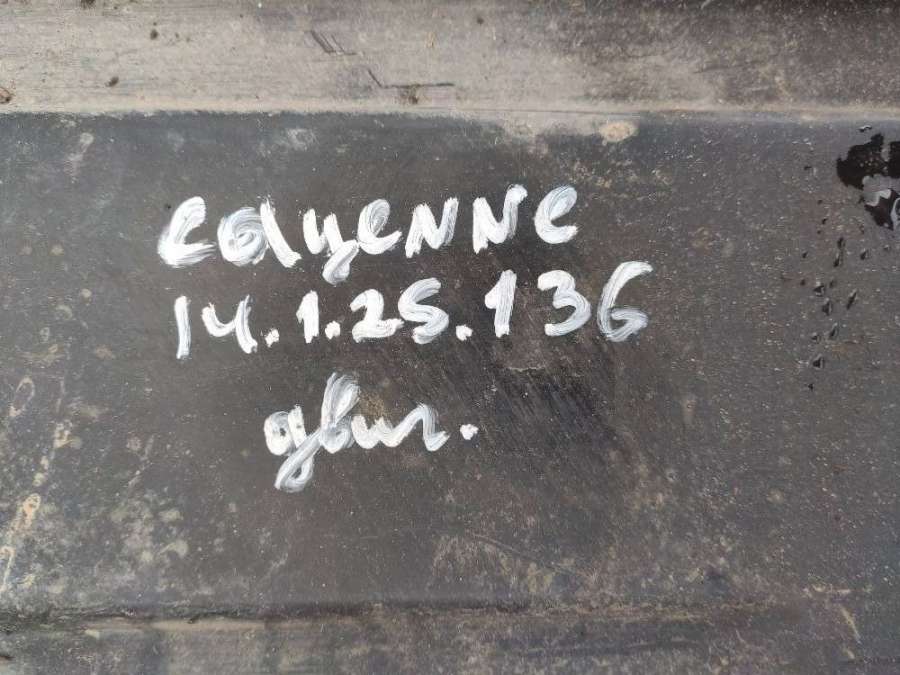 Cayenne
14.1.25.136
двиг.